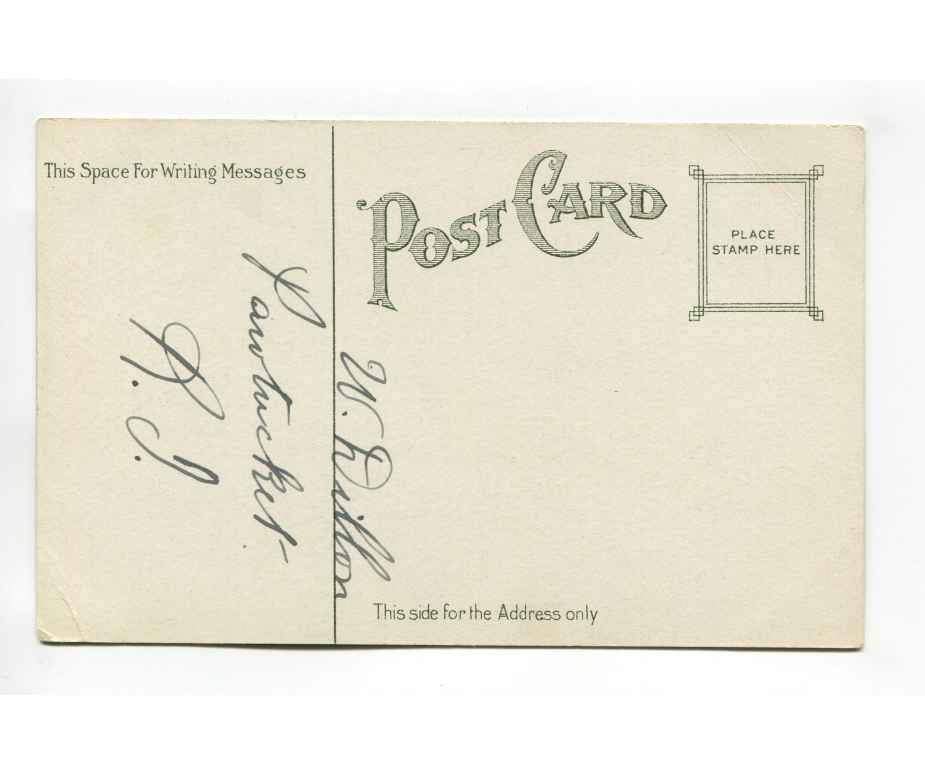 This Space For Writing Messages
POST CARD
PLACE
STAMP HERE
W. Dillon
Pawtucket.
R. I.
This side for the Address only